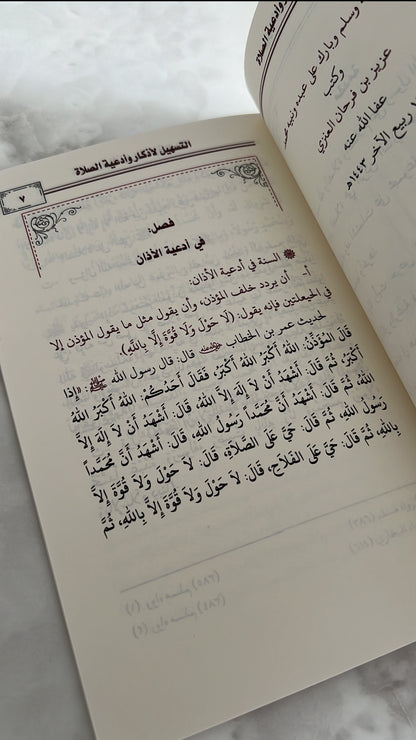 وأدعية الصلاة
وسلم وبارك على عبده ونبيه محمد
وكتب
عزيز بن فرحان العنزي
عفا الله عنه
ربيع الآخر ١٤٤٣هـ
التسهيل لأذكار وأدعية الصلاة
٧
فصل:
في أدعية الأذان
السنة في أدعية الأذان:
أ- أن يردد خلف المؤذن، وأن يقول مثل ما يقول المؤذن إلا
في الحيعلتين فإنه يقول: (لَا حَوْلَ وَلَا قُوَّةَ إِلَّا بِاللهِ).
لحديث عمر بن الخطاب رضي الله عنه قال: قال رسول الله ﷺ: «إِذَا
قَالَ المُؤَذِّنُ: اللهُ أَكْبَرُ اللهُ أَكْبَرُ، فَقَالَ أَحَدُكُمْ: اللهُ أَكْبَرُ اللهُ
أَكْبَرُ، ثُمَّ قَالَ: أَشْهَدُ أَنْ لَا إِلَهَ إِلَّا اللهُ، قَالَ: أَشْهَدُ أَنْ لَا إِلَهَ إِلَّا
اللهُ، ثُمَّ قَالَ: أَشْهَدُ أَنَّ مُحَمَّداً رَسُولُ اللهِ، قَالَ: أَشْهَدُ أَنَّ مُحَمَّداً
رَسُولُ اللهِ، ثُمَّ قَالَ: حَيَّ عَلَى الصَّلَاةِ، قَالَ: لَا حَوْلَ وَلَا قُوَّةَ إِلَّا
بِاللهِ، ثُمَّ قَالَ: حَيَّ عَلَى الفَلَاحِ، قَالَ: لَا حَوْلَ وَلَا قُوَّةَ إِلَّا بِاللهِ، ثُمَّ